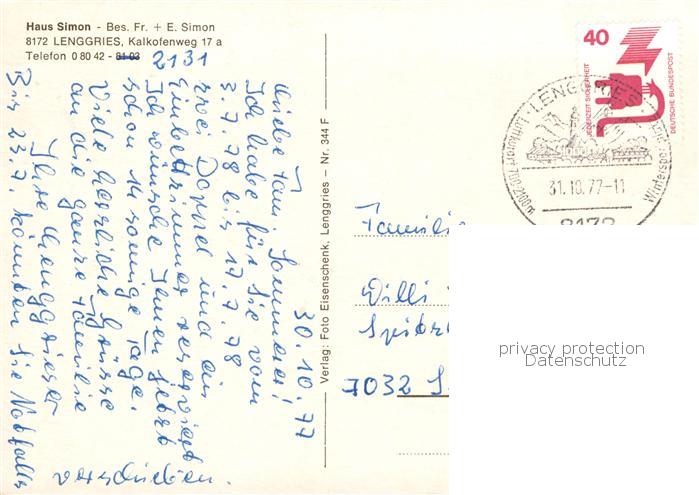 Haus Simon - Bes. Fr. + E. Simon
8172 LENGGRIES, Kalkofenweg 17 a
Telefon 0 80 42 - 81 03 2131
30.10.77
Liebe Fam. Sommerer!
Ich habe für Sie vom
3.7.78 bis 17.7.78
zwei Doppel und ein
Einbettzimmer reserviert
Ich wünsche Ihnen jetzt
schon 14 sonnige Tage.
Viele herzliche Grüsse
an die ganze Familie
Ihre Lenggrieser
Bis 23.7. könnten Sie Notfalls
verschieben.
Verlag: Foto Eisenschenk, Lenggries – Nr. 344 F
40
JEDERZEIT SICHERHEIT
DEUTSCHE BUNDESPOST
LENGGRIES
Luftkurort 700/1700m
Wintersport
31.10.77-11
8172
Familie
Willi
7032 S
privacy protection
Datenschutz